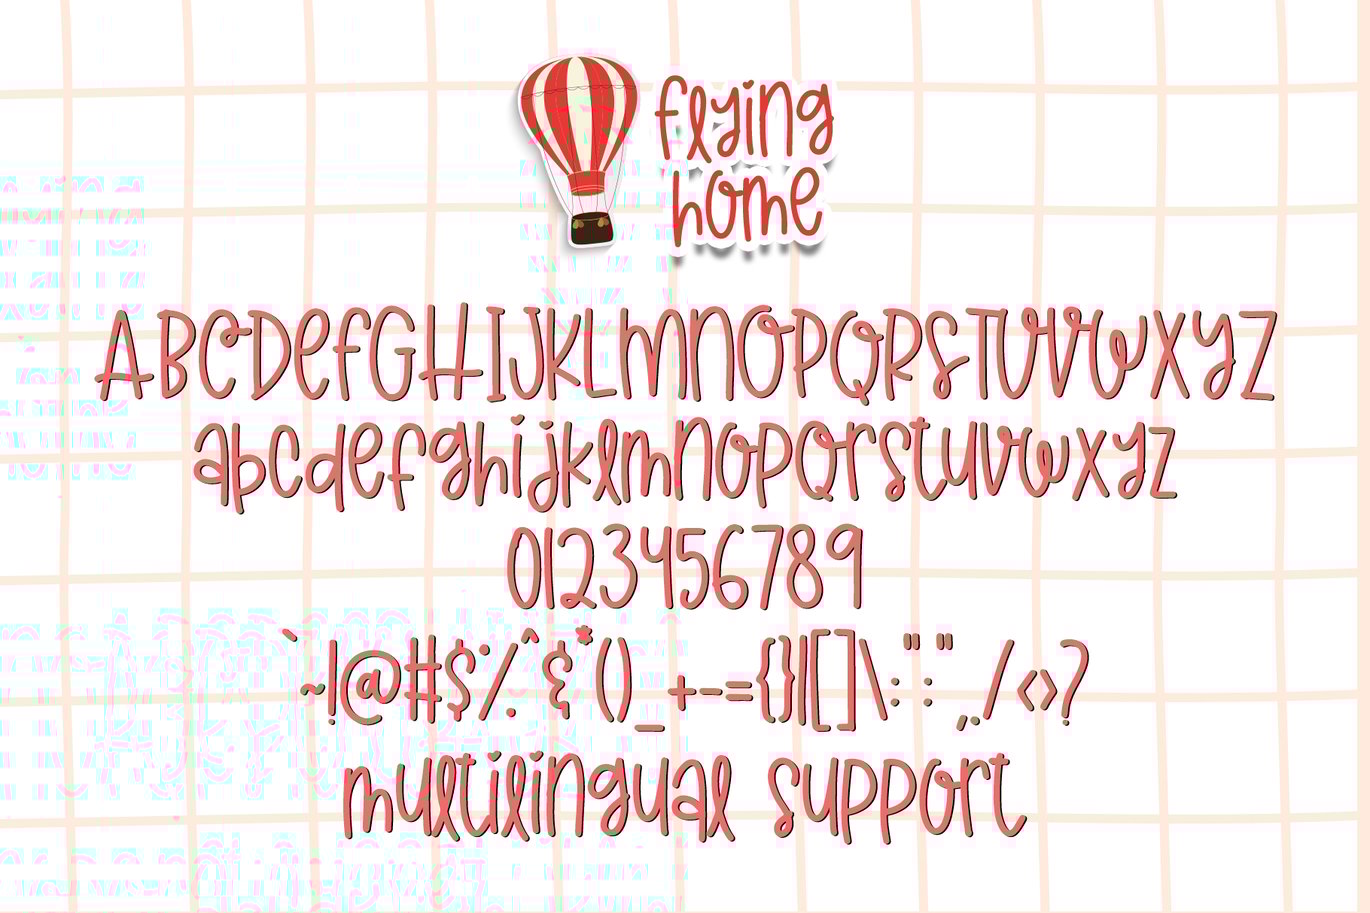 flying
home
ABCDEFGHIJKLMNOPQRSTUVWXYZ
abcdefghijklmnopqrstuvwxyz
0123456789
`~!@#$%^&*()_+-={}|[]\:":",./<>?
multilingual support